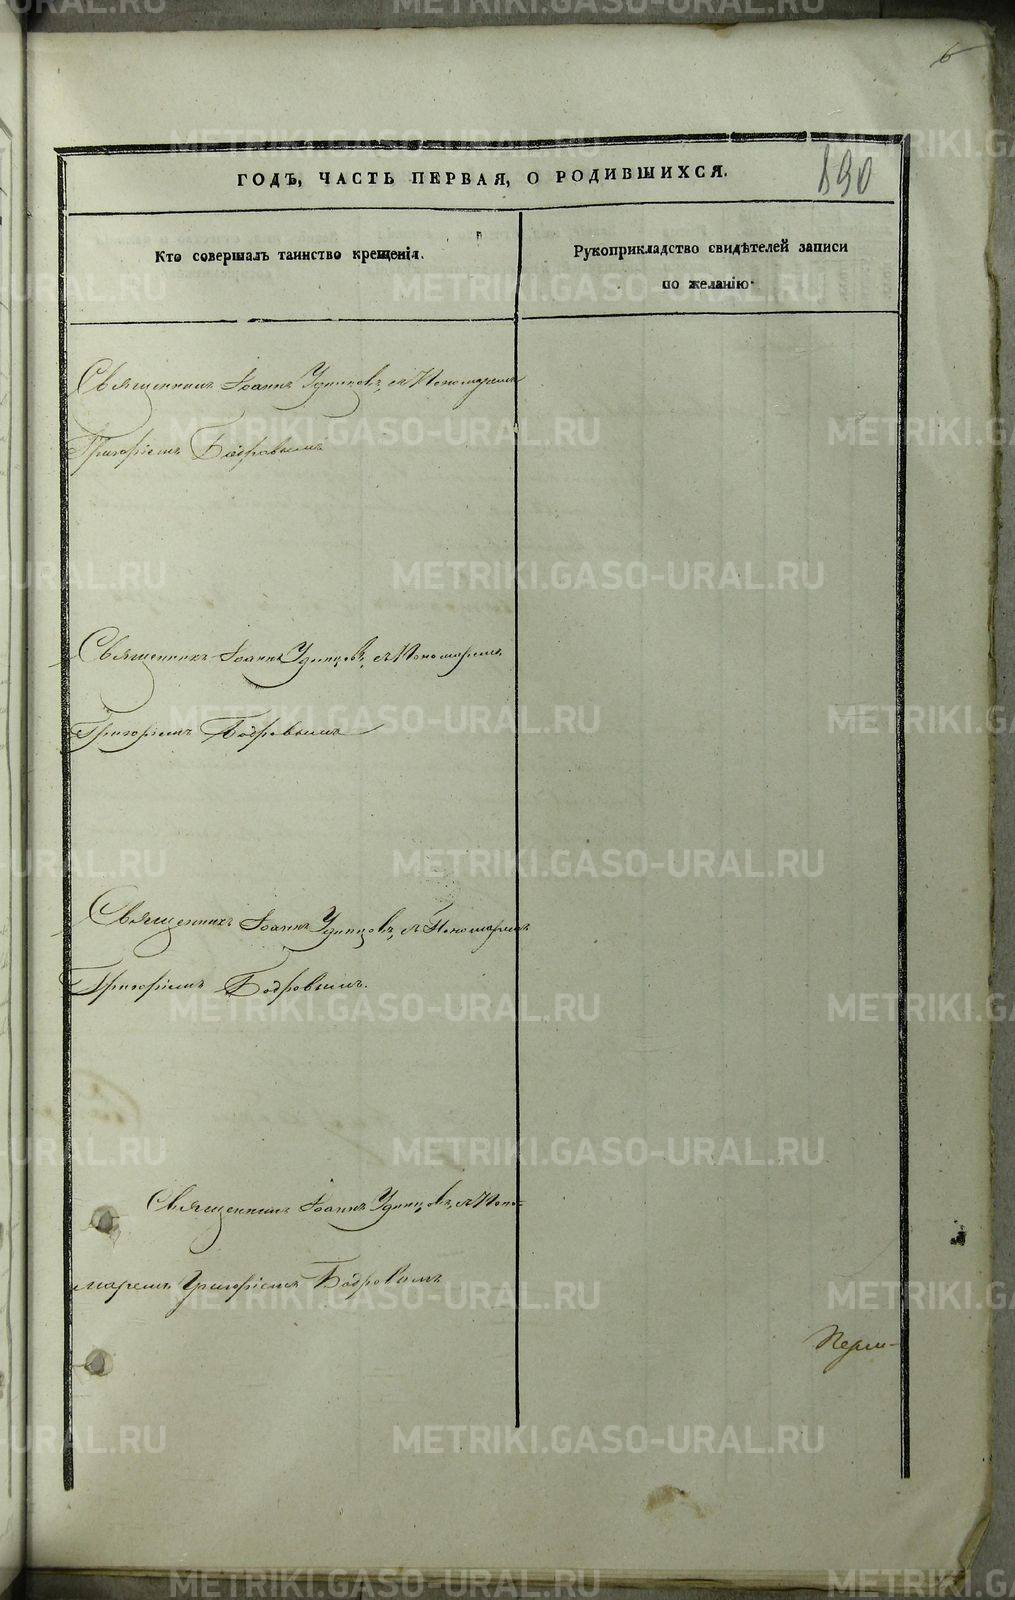 6
890
ГОДЪ, ЧАСТЬ ПЕРВАЯ, О РОДИВШИХСЯ.
Кто совершалъ таинство крещенія.
Рукоприкладство свидѣтелей записи
по желанію.
Священникъ Іоаннъ Удинцовъ, съ Пономаремъ
Григоріемъ Бодровымъ
Священникъ Іоаннъ Удинцовъ, съ Пономаремъ
Григоріемъ Бодровымъ
Священникъ Іоаннъ Удинцовъ, съ Пономаремъ
Григоріемъ Бодровымъ.
Священникъ Іоаннъ Удинцовъ, съ Поно-
маремъ Григоріемъ Бодровымъ
METRIKI.GASO-URAL.RU